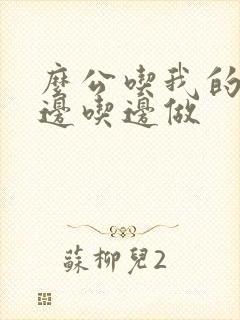 麼公喫我的
邊喫邊做
蘇柳兒2